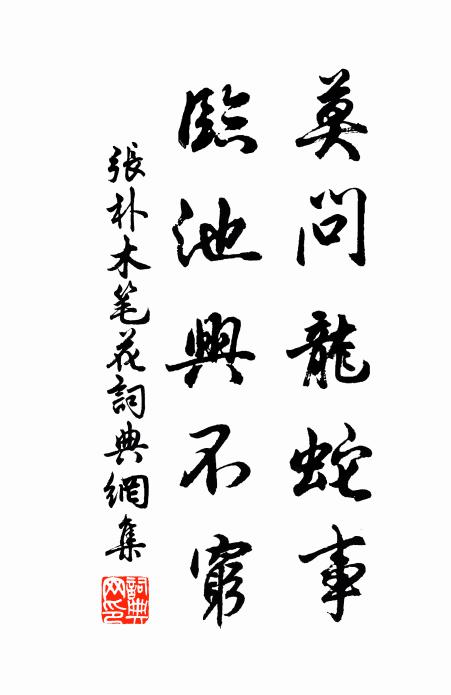 莫問龍蛇事
臨池興不窮
張朴木笔花詞典網集
詞典網印